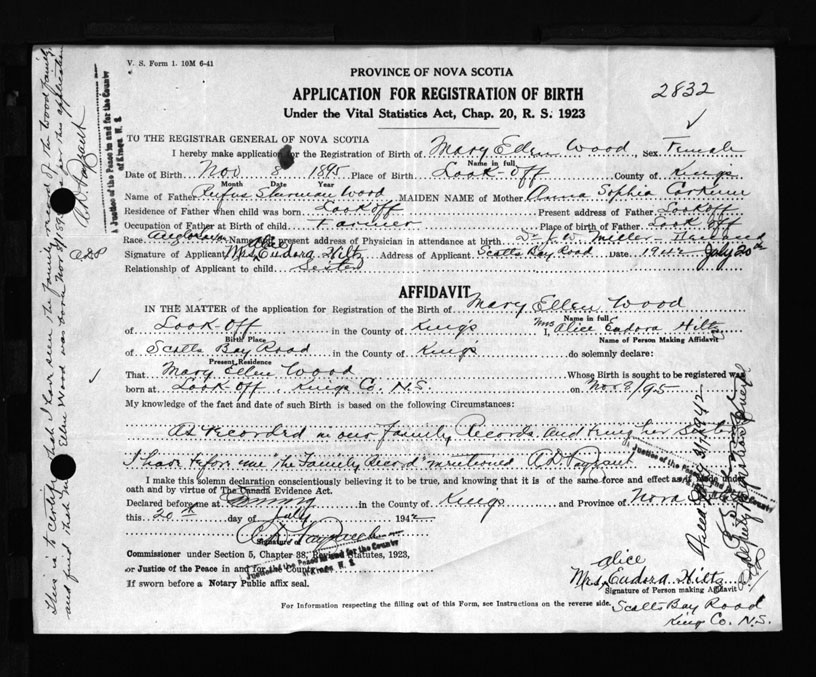 V. S. Form 1. 10M 6-41
PROVINCE OF NOVA SCOTIA
2832
APPLICATION FOR REGISTRATION OF BIRTH
Under the Vital Statistics Act, Chap. 20, R. S. 1923
TO THE REGISTRAR GENERAL OF NOVA SCOTIA
I hereby make application for the Registration of Birth of Mary Ellen Wood, Sex Female
Name in full
Date of Birth Nov 8 1895 Place of Birth Look-Off County of Kings
Month Date Year
Name of Father Rufus Sherman Wood MAIDEN NAME of Mother Anna Sophia
Residence of Father when child was born Lookoff Present address of Father Lookoff
Occupation of Father at Birth of child Farmer Place of birth of Father Look Off
Race Name and present address of Physician in attendance at birth Dr. J. W. Miller
Signature of Applicant Mrs. Eudora Hiltz Address of Applicant Scotts Bay Road Date 1942 July 20th
Relationship of Applicant to child Sister
AFFIDAVIT
IN THE MATTER of the application for Registration of the Birth of Mary Ellen Wood
Name in full
of Look-Off in the County of King's I, Mrs Alice Eudora Hiltz
Birth Place Name of Person Making Affidavit
of Scotts Bay Road in the County of King's do solemnly declare:
Present Residence
That Mary Ellen Wood Whose Birth is sought to be registered was
born at Look-Off, Kings Co. N.S. on Nov. 8/95
My knowledge of the fact and date of such Birth is based on the following Circumstances:
As recorded in our Family Records and being her Sister
I have before me "the Family Record" mentioned
I make this solemn declaration conscientiously believing it to be true, and knowing that it is of the same force and effect as if made under
oath and by virtue of The Canada Evidence Act.
Declared before me at Canning in the County of Kings and Province of Nova Scotia
this 20th day of July 1942
Signature of
Commissioner under Section 5, Chapter 38, Revised Statutes, 1923,
or Justice of the Peace in and for the County
If sworn before a Notary Public affix seal.
Alice
Mrs. Eudora Hiltz
Signature of Person making Affidavit
For Information respecting the filling out of this Form, see Instructions on the reverse side.
Scotts Bay Road
Kings Co. N.S.
This is to certify that I have seen the family record of the Wood family
and find that Mary Ellen Wood was born Nov 8/1895
A Justice of the Peace in and for the County
of Kings N. S.